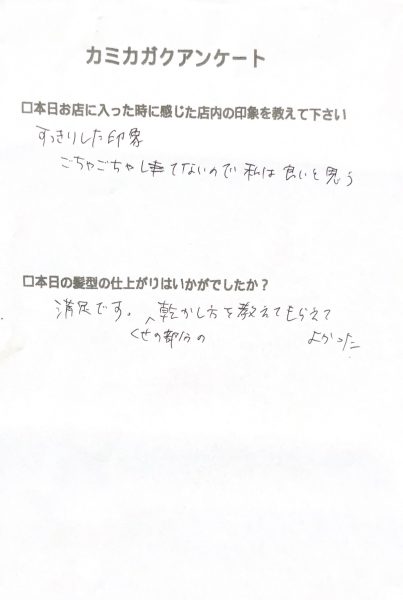 カミカガクアンケート
□本日お店に入った時に感じた店内の印象を教えて下さい
すっきりした印象
ごちゃごちゃしてないので 私は良いと思う
□本日の髪型の仕上がりはいかがでしたか？
満足です。 乾かし方を教えてもらえて
くせの部分の よかった